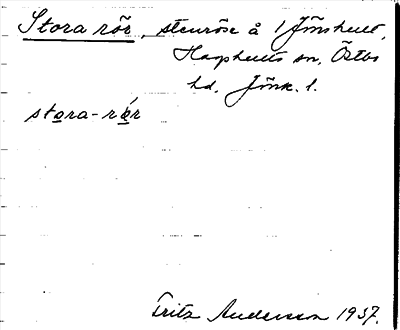 Stora rör, stenröse å 1 Jönshult,
Hagshults sn, Östbo
hd. Jönk. l.
stora-rør
Fritz Andersson 1937.